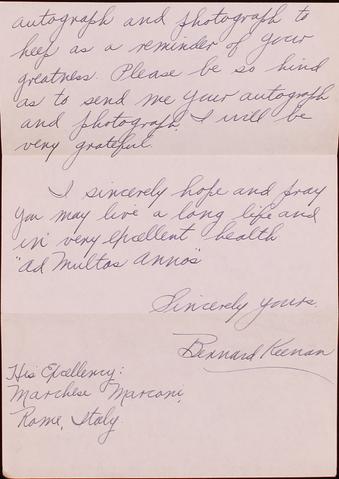 autograph and photograph to
keep as a reminder of your
greatness. Please be so kind
as to send me your autograph
and photograph. I will be
very grateful
I sincerely hope and pray
you may live a long life and
in very excellent health
"ad Multos annos"
Sincerely yours.
Bernard Keenan
His Excellency:
Marchese Marconi,
Rome, Italy.